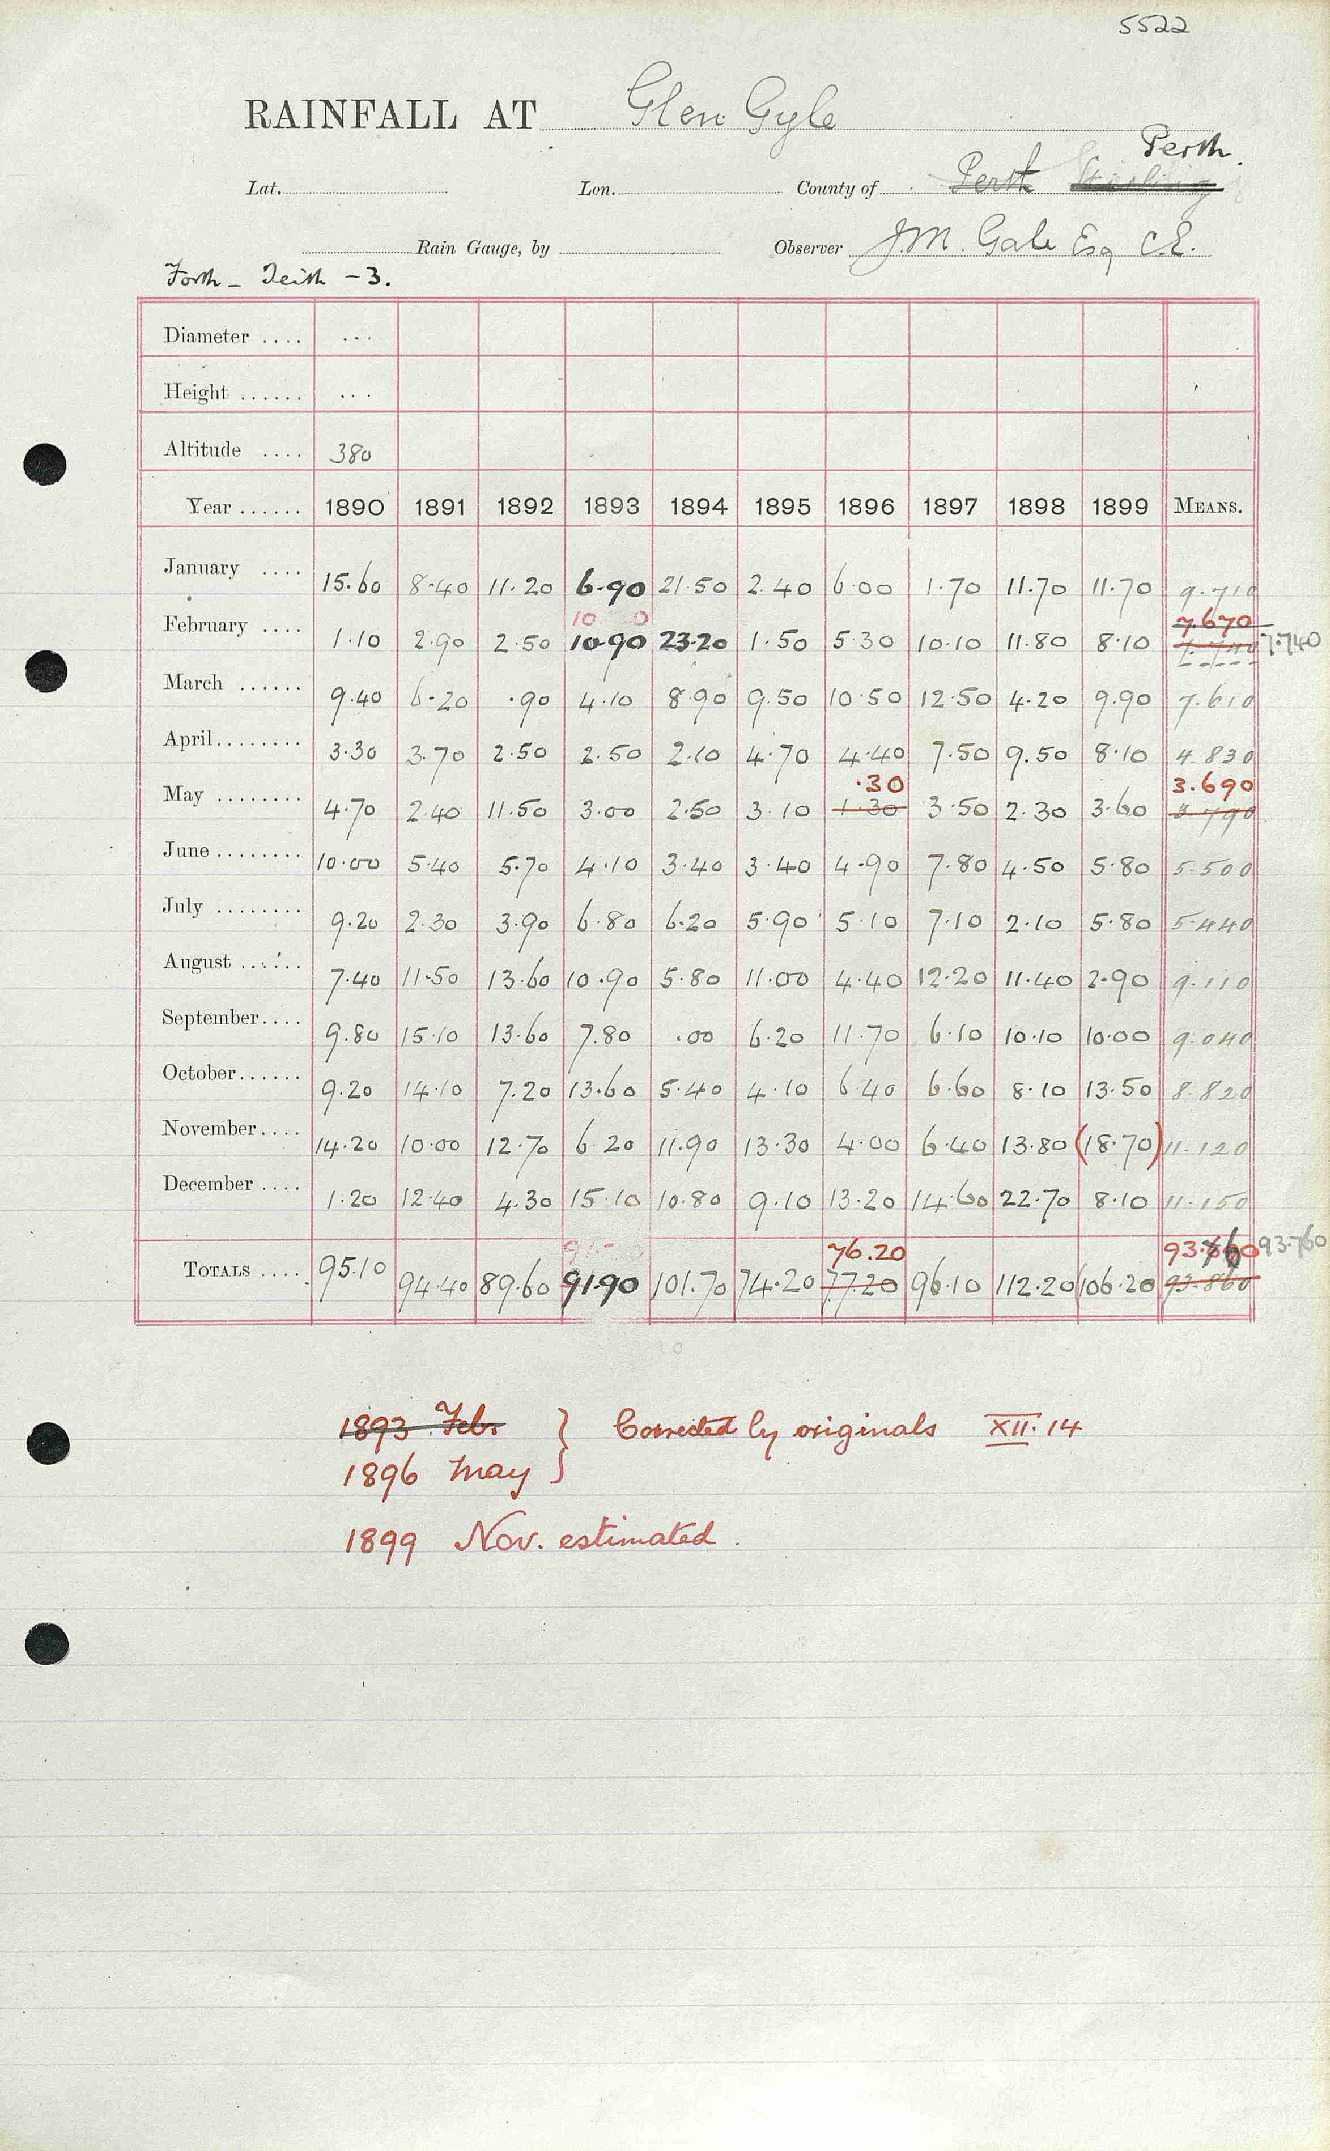 5522
RAINFALL AT Glen Gyle
Perth.
Lat. Lon. County of Perth Stirling
Rain Gauge, by Observer J.M. Gale Esq C.E.
Forth - Teith - 3.
Diameter .... ...
Height ...... ...
Altitude .... 380
Year ...... 1890 1891 1892 1893 1894 1895 1896 1897 1898 1899 MEANS.
January .... 15.60 8.40 11.20 6.90 21.50 2.40 6.00 1.70 11.70 11.70 9.710
10 0 7.670
February .... 1.10 2.90 2.50 10.90 23.20 1.50 5.30 10.10 11.80 8.10 7.740 7.740
March ...... 9.40 6.20 .90 4.10 8.90 9.50 10.50 12.50 4.20 9.90 7.610
April........ 3.30 3.70 2.50 2.50 2.10 4.70 4.40 7.50 9.50 8.10 4.830
.30 3.690
May ........ 4.70 2.40 11.50 3.00 2.50 3.10 1.30 3.50 2.30 3.60 3.790
June ........ 10.00 5.40 5.70 4.10 3.40 3.40 4.90 7.80 4.50 5.80 5.500
July ........ 9.20 2.30 3.90 6.80 6.20 5.90 5.10 7.10 2.10 5.80 5.440
August ...... 7.40 11.50 13.60 10.90 5.80 11.00 4.40 12.20 11.40 2.90 9.110
September.... 9.80 15.10 13.60 7.80 .00 6.20 11.70 6.10 10.10 10.00 9.040
October...... 9.20 14.10 7.20 13.60 5.40 4.10 6.40 6.60 8.10 13.50 8.820
November.... 14.20 10.00 12.70 6.20 11.90 13.30 4.00 6.40 13.80 (18.70) 11.120
December .... 1.20 12.40 4.30 15.10 10.80 9.10 13.20 14.60 22.70 8.10 11.150
76.20 93.760 93.760
TOTALS .... 95.10 94.40 89.60 91.90 101.70 74.20 77.20 96.10 112.20 106.20 93.860
1893 Feb. } Corrected by originals XII.14
1896 May }
1899 Nov. estimated.